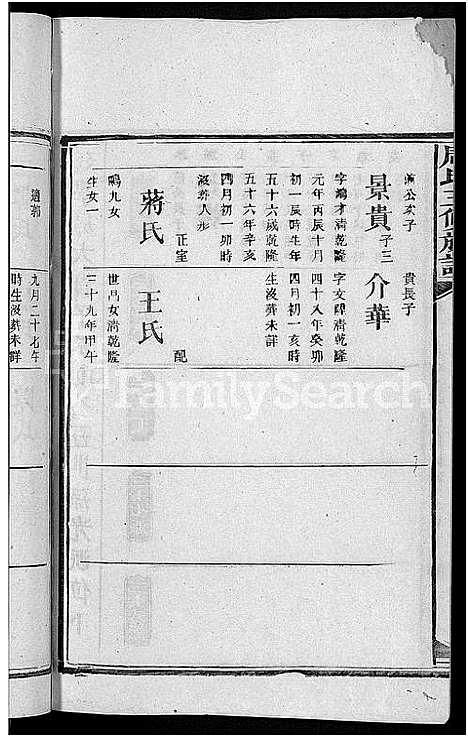 周氏三修族譜
公次子
景貴
子三
字鴻才清乾隆
元年丙辰十月
初一辰時生年
五十六歲乾隆
五十六年辛亥
四月初一卯時
歿葬人形
蔣氏
正室
鳴九女
生女一
貴長子
介華
字文 清乾隆
四十八年癸卯
四月初一亥時
生歿葬未詳
王氏
配
世昌女清乾隆
三十九年甲午
適郭
九月二十七午
時生歿葬未詳
FamilySearch